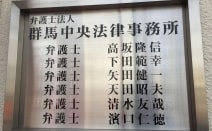 弁護士法人
群馬中央法律事務所
弁護士 高坂隆信
弁護士 下田範幸
弁護士 矢田健一
弁護士 天田昭夫
弁護士 清水友哉
弁護士 濱口仁徳